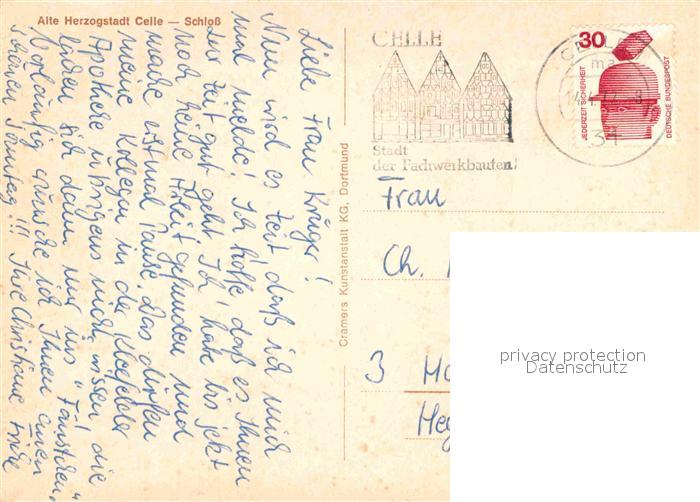 Alte Herzogstadt Celle — Schloß
Liebe Frau Krüger!
Nun wird es Zeit daß ich mich
mal melde! Ich hoffe daß es Ihnen
zur Zeit gut geht. Ich habe bis jetzt
noch keine Arbeit gefunden und
mache erstmal Pause. Das dürfen
meine Kollegen in der Kleefelder
Apotheke übrigens nicht wissen, die
laden sich dann nur ins "Fäustchen"
Vorläufig wünsche ich Ihnen einen
schönen Sonntag!!! Ihre Christiane
Cramers Kunstanstalt KG, Dortmund
CELLE
Stadt
der Fachwerkbauten!
CELLE
30
JEDERZEIT SICHERHEIT
DEUTSCHE BUNDESPOST
Frau
Ch.
3
privacy protection
Datenschutz